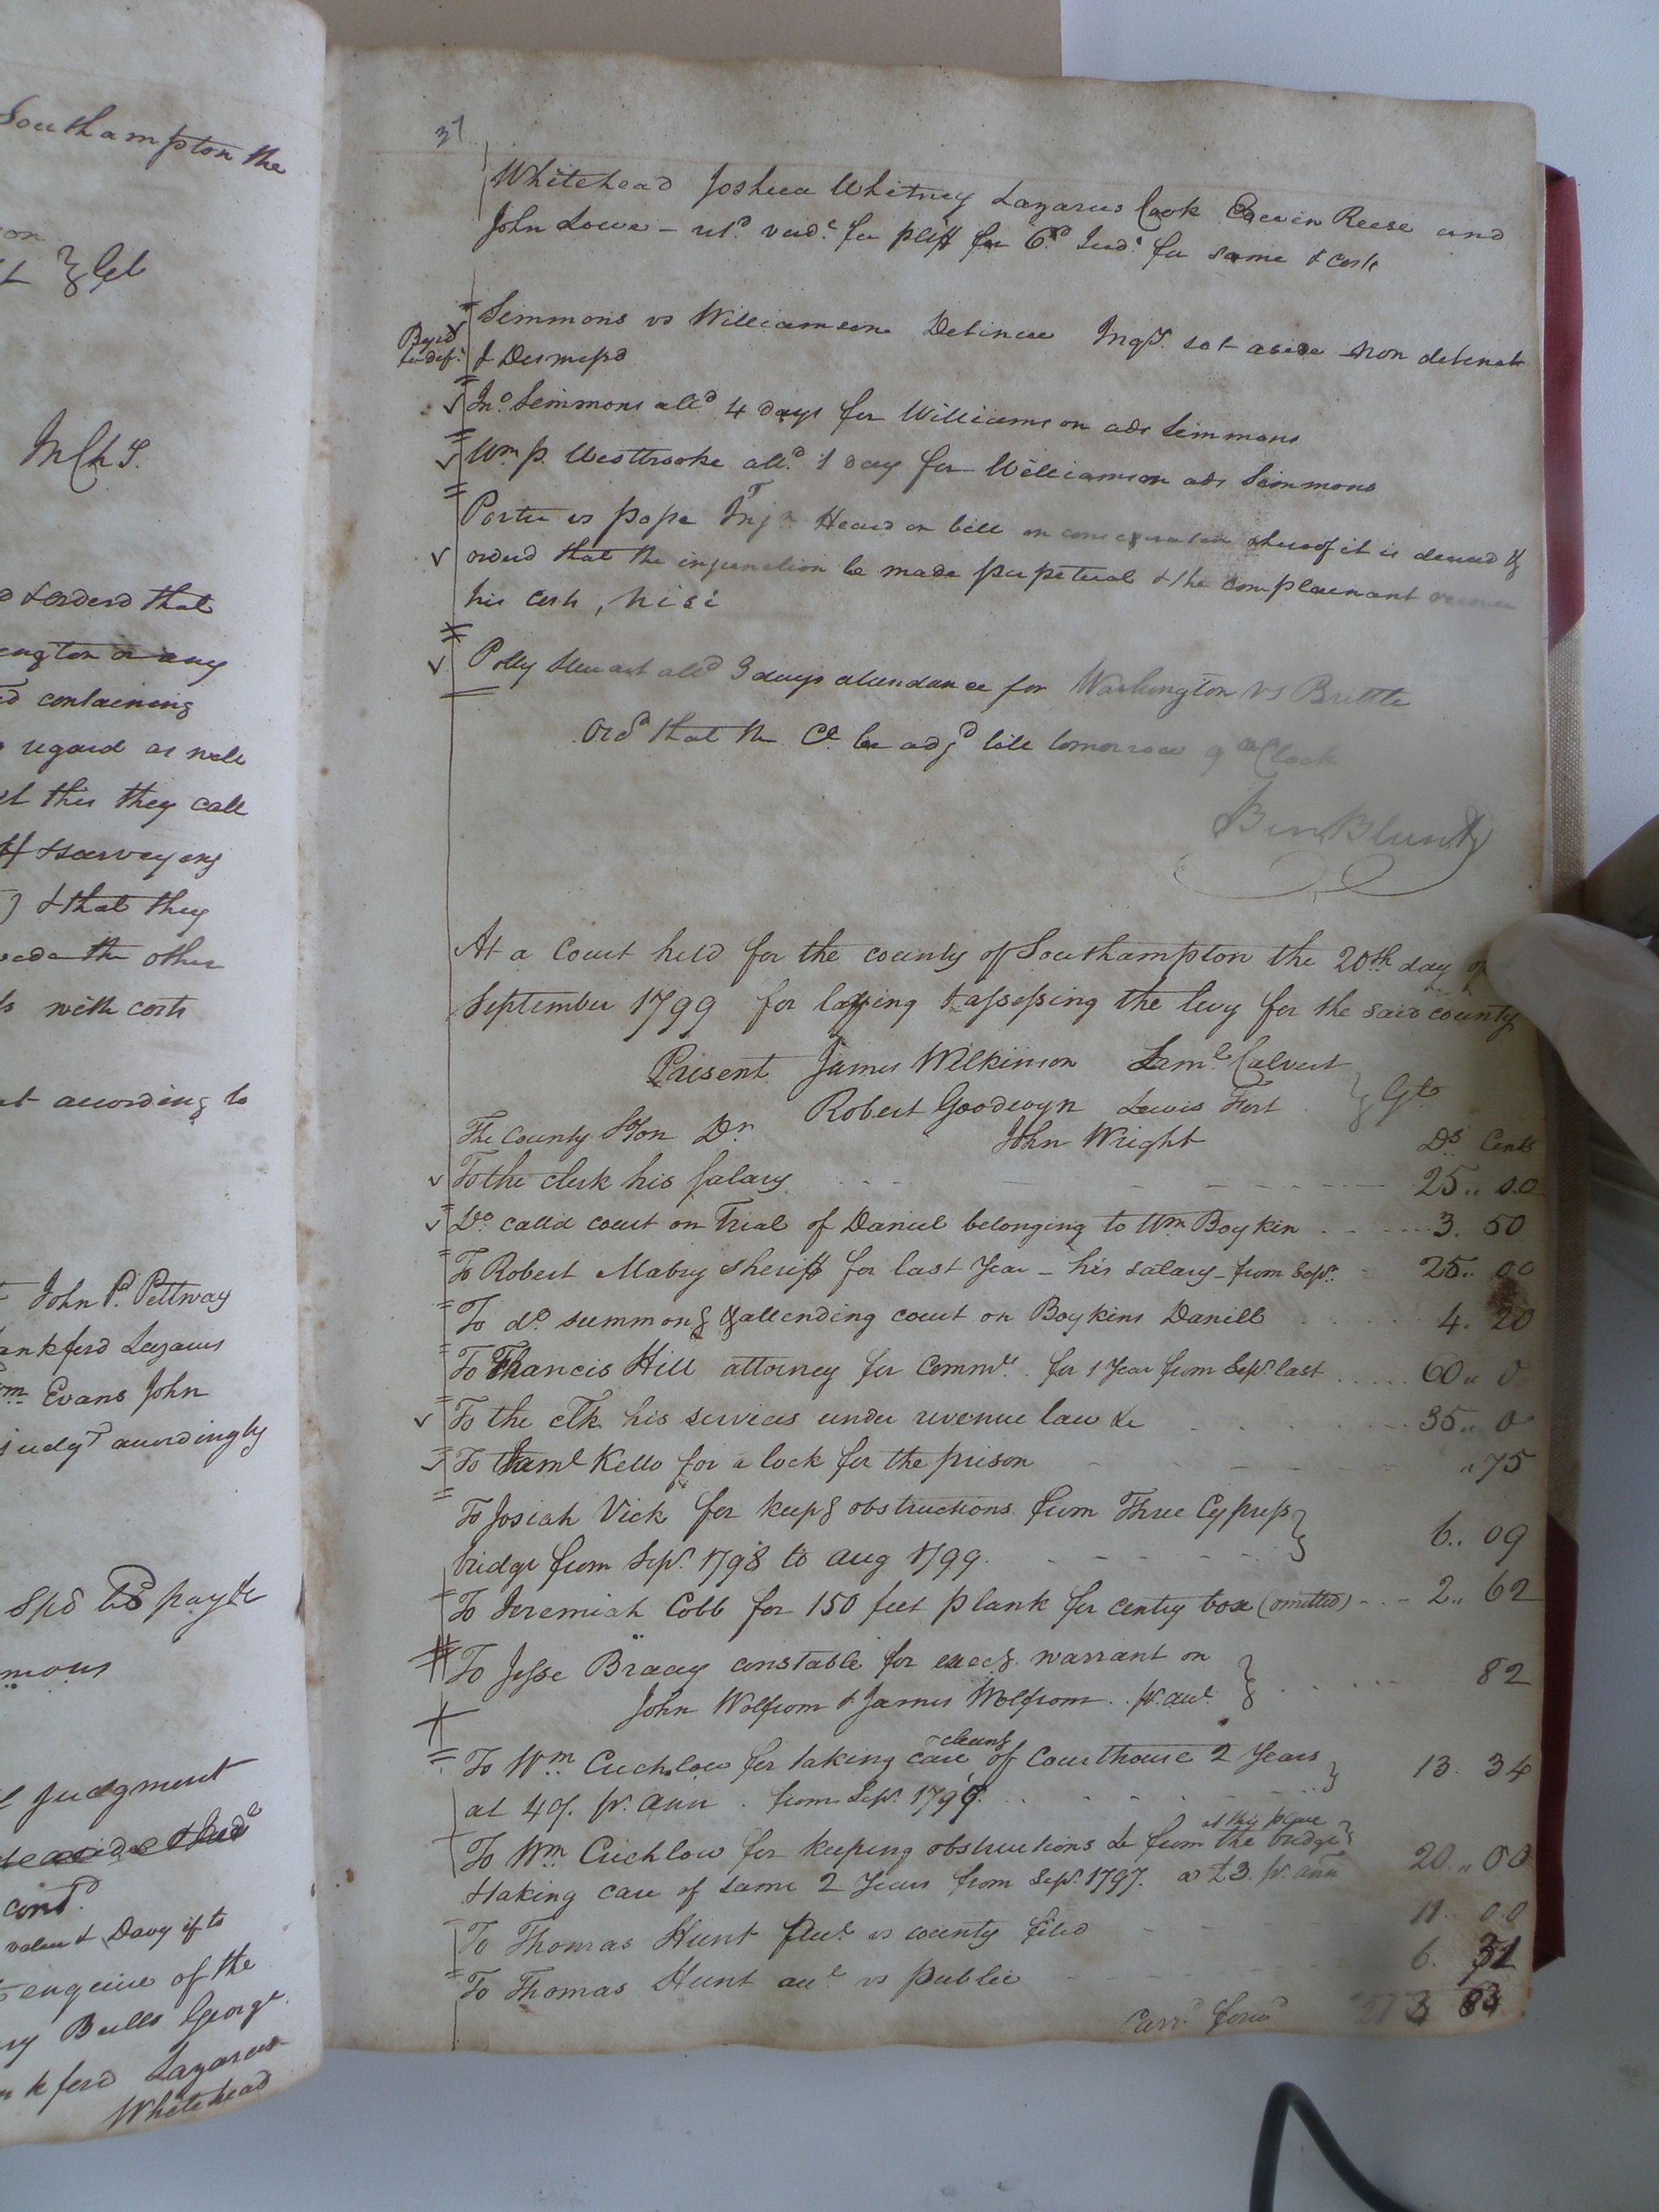 Southampton the
on
} Gt
d & orderd that
ington or any
d containing
regard as well
this they call
& Surveying
& that they
the other
with costs
according to
John P. Pettway
ankford Lazarus
Wm Evans John
judgt accordingly
spd
mons
judgment
contd
& Davy if to
enquire of the
ry Bulls George
nkford Lazarus
Whitehead
37
Whitehead Joshua Whitney Lazarus Cook Reese and
John Lowe – retd verdt for pltff for 6d Judt for same & costs
Simmons vs Williamson Detinue Inqy. set aside non detinet
& Dismissd
Jno Simmons alld 4 days for Williamson ads Simmons
Wm P. Westbrooke alld 1 day for Williamson ads Simmons
Porter vs Pope Injn Heard on bill on consideration whereof it is decreed &
orderd that the injunction be made perpetual & the complainant recover
his costs, nisi
Polly Stewart alld 3 days attendance for Washington vs Brittle
Ord that the Ct be adjd till tomorrow 9 oClock
Ben Blunt
At a Court held for the county of Southampton the 20th day of
September 1799 for laying & assessing the levy for the said county
Present James Wilkinson Saml Calvert
Robert Goodwyn Lewis Fort } Gt
The County Hon Dr John Wright Ds Cents
To the clerk his salary 25.. 00
Do calld court on Trial of Daniel belonging to Wm Boykin 3. 50
To Robert Mabry sheriff for last Year – his salary – from Sepr. 25.. 00
To do. summong & attending court on Boykins Daniel 4. 20
To Francis Hill attorney for Commth. for 1 Year from Sepr. last 60 .. 0
To the clk his services under revenue law &c 35.. 0
To Saml Kello for a lock for the prison .. 75
To Josiah Vick for keepg obstructions from Three Cypress }
bridge from Sepr. 1798 to Aug 1799. 6.. 09
To Jeremiah Cobb for 150 feet plank for centry box (omitted) 2.. 62
To Jesse Bracey constable for execg. warrant on }
John Wolfrom & James Wolfrom . pr. acct. 82
cleang
To Wm Crichlow for taking care of Courthouse 2 Years }
at 40/. pr. ann . from Sepr. 1797. 13. 34
at this place
To Wm Crichlow for keeping obstructions &c from the bridge }
& taking care of same 2 Years from Sepr. 1797. a £3. pr. ann 20.. 00
To Thomas Hunt vs county filed 11.. 00
To Thomas Hunt acct vs public 6. 31
Carrd forwd 213 83